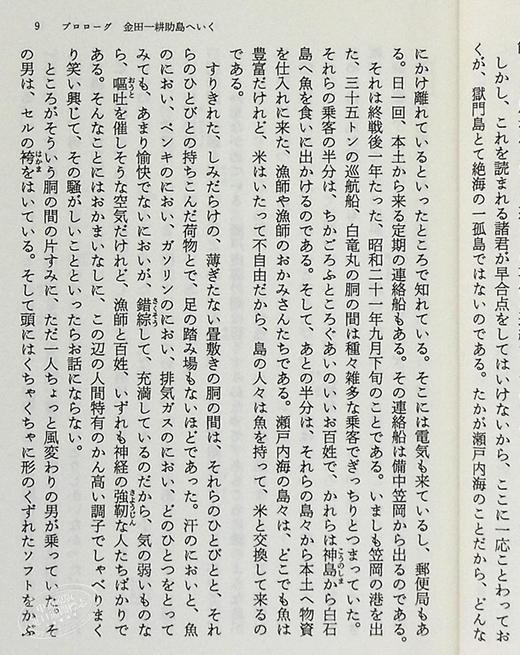 9 プロローグ 金田一耕助島へいく
しかし、これを読まれる諸君が早合点をしてはいけないから、ここに一応ことわってお
くが、獄門島とて絶海の一孤島ではないのである。たかが瀬戸内海のことだから、どんな
にかけ離れているといったところで知れている。そこには電気も来ているし、郵便局もあ
る。日一回、本土から来る定期の連絡船もある。その連絡船は備中笠岡から出るのである。
それは終戦後一年たった、昭和二十一年九月下旬のことである。いましも笠岡の港を出
た、三十五トンの巡航船、白竜丸の胴の間は種々雑多な乗客でぎっちりとつまっていた。
それらの乗客の半分は、ちかごろふところぐあいのいいお百姓で、かれらは神島から白石
島へ魚を食いに出かけるのである。そして、あとの半分は、それらの島々から本土へ物資
を仕入れに来た、漁師や漁師のおかみさんたちである。瀬戸内海の島々は、どこでも魚は
豊富だけれど、米はいたって不自由だから、島の人々は魚を持って米と交換して来るの
である。
すりきれた、しみだらけの、薄ぎたない畳敷きの胴の間は、それらのひとびとと、それ
らのひとびとの持ちこんだ荷物とで、足の踏み場もないほどであった。汗のにおいと、魚
のにおい、ペンキのにおい、ガソリンのにおい、排気ガスのにおい、どのひとつをとって
みても、あまり愉快でないにおいが、錯綜して、充満しているのだから、気の弱いものな
ら、嘔吐を催しそうな空気だけれど、漁師と百姓、いずれも神経の強靭な人たちばかりで
ある。そんなことにはおかまいなしに、この辺の人間特有のかん高い調子でしゃべりまく
り笑い興じて、その騒がしいことといったらお話にならない。
ところがそういう胴の間の片すみに、ただ一人ちょっと風変わりの男が乗っていた。そ
の男は、セルの袴をはいている。そして頭にはくちゃくちゃに形のくずれたソフトをかぶ